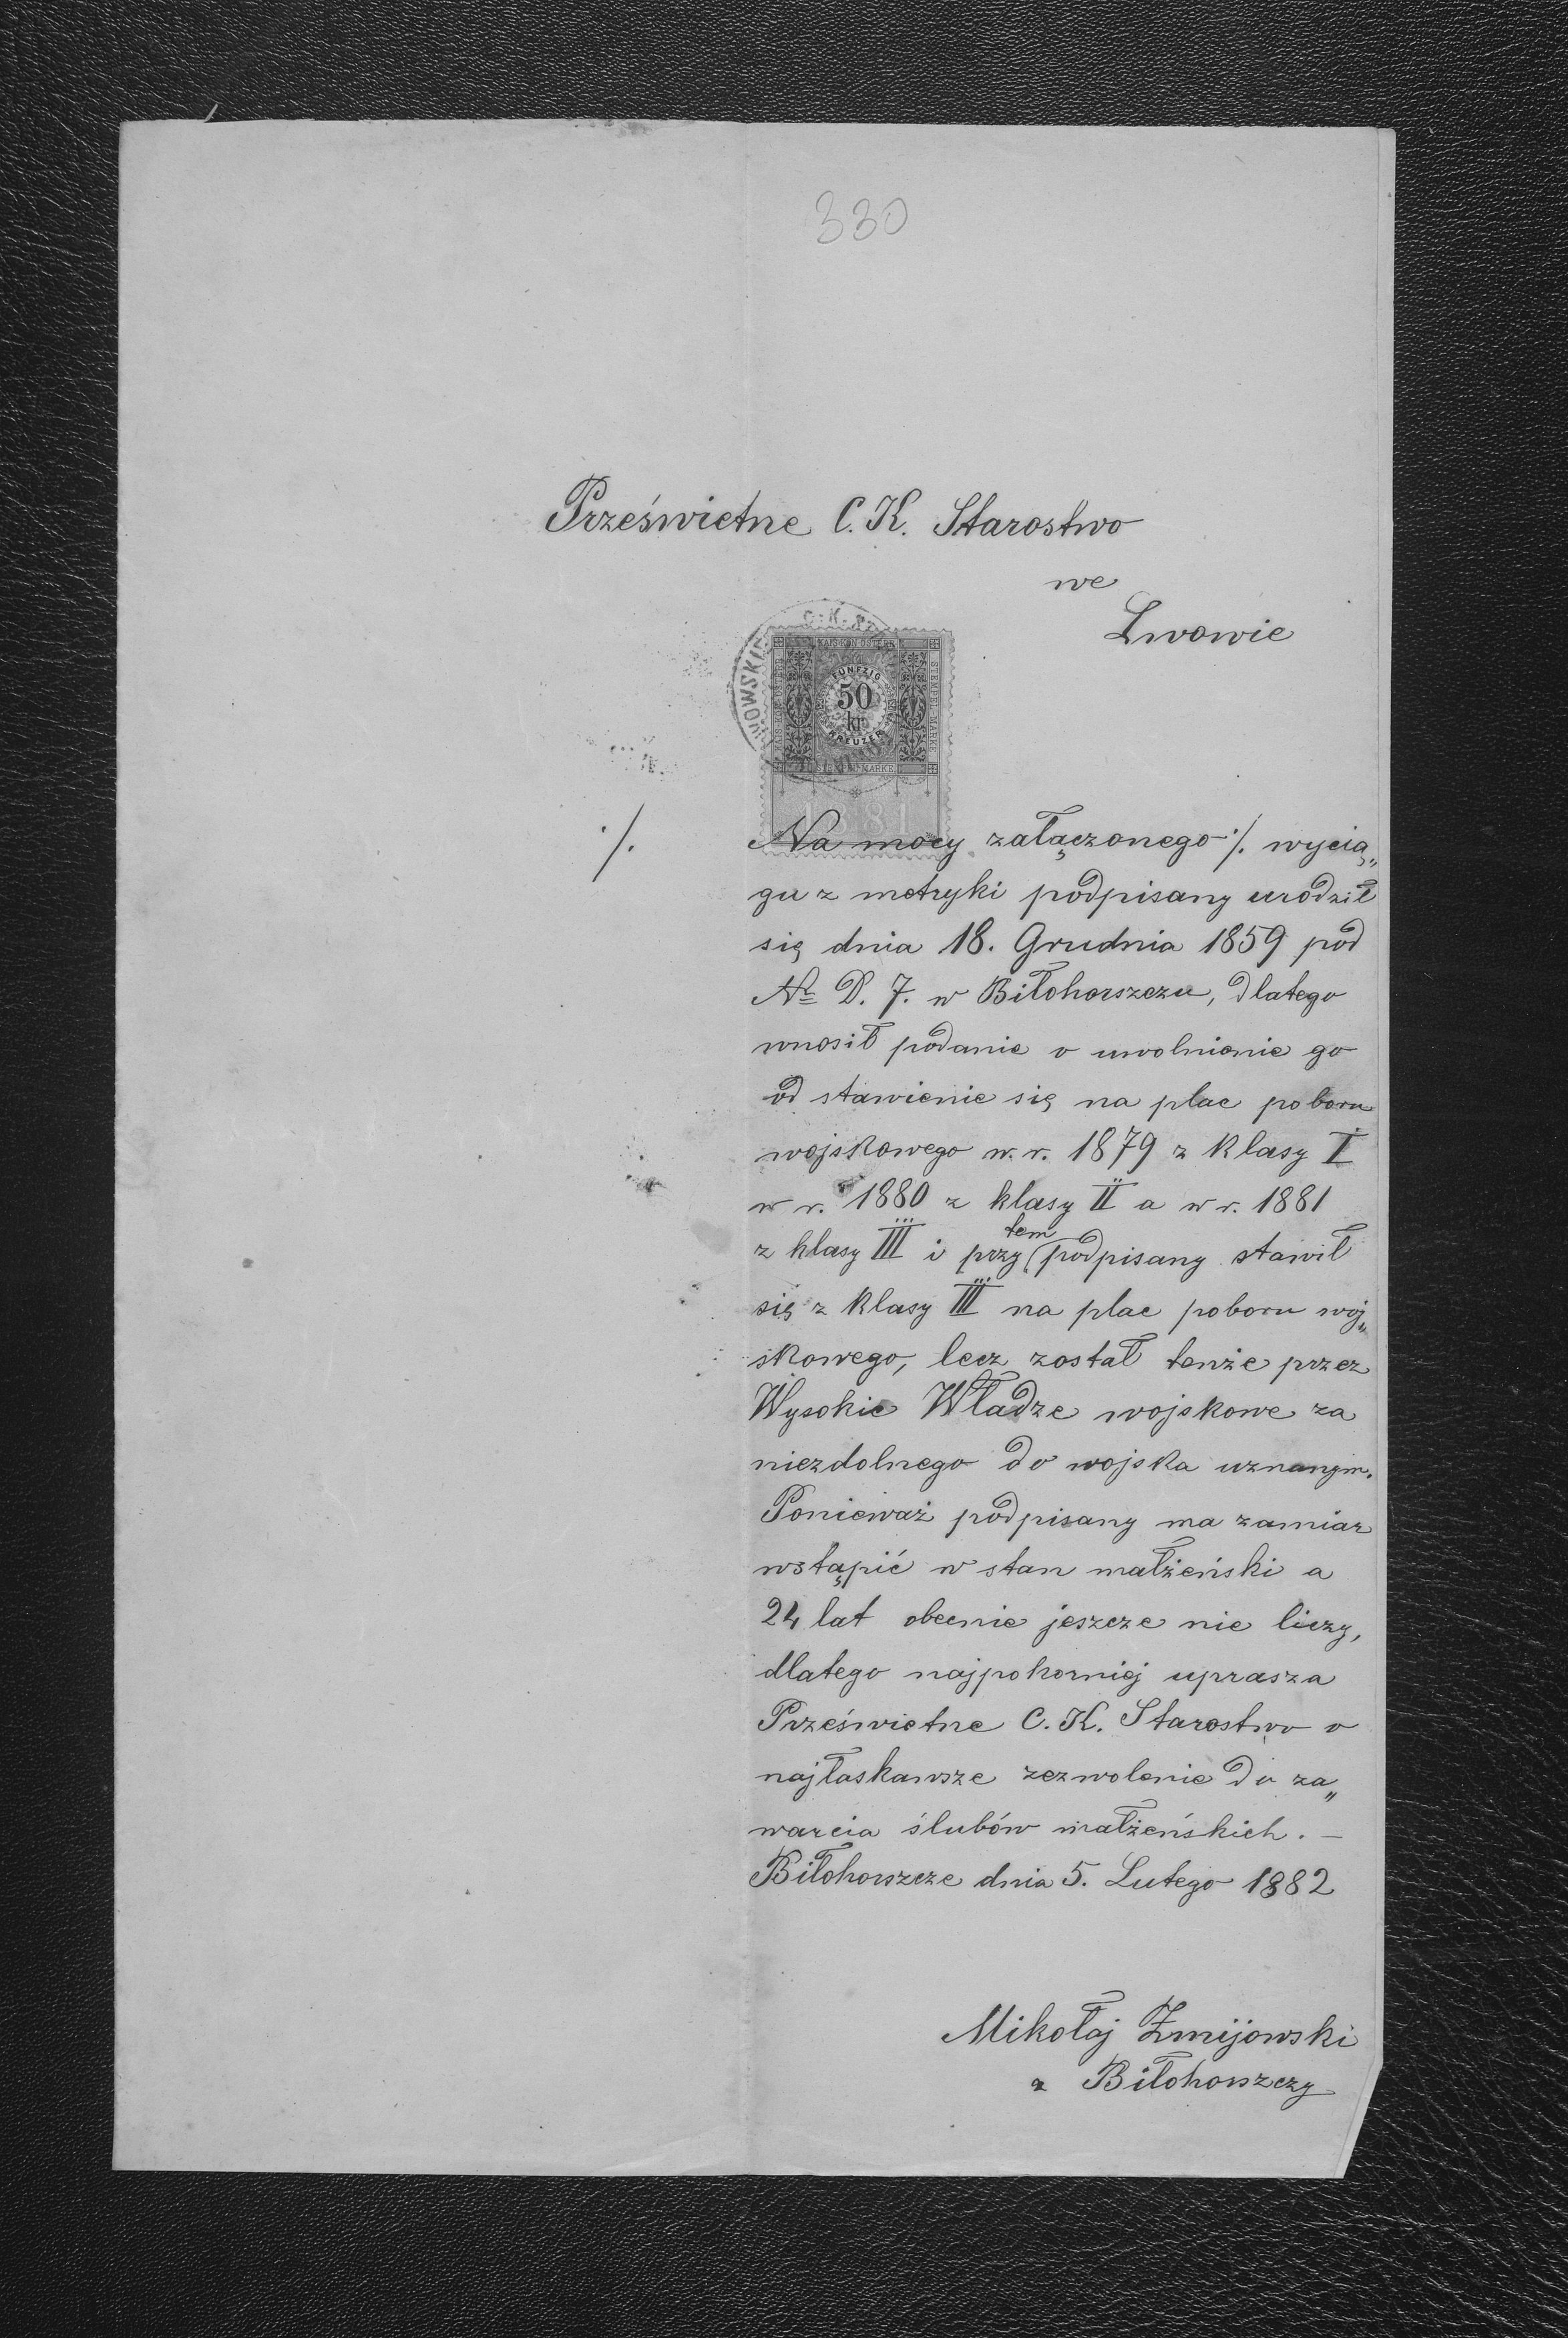 330
Prześwietne C. K. Starostwo
we
Lwowie
C. K. S
WOWSKIE
KAIS. KÖN. ÖSTERR.
STEMPEL MARKE
FÜNFZIG
50
kr.
KREUZER
STEMPEL MARKE
1881
·/.
Na mocy załączonego ·/. wycią„
gu z metryki podpisany urodził
się dnia 18. Grudnia 1859 pod
No D. 7. w Biłohorszczu, dlatego
wnosił podanie o uwolnienie go
od stawienie się na plac poboru
wojskowego w. r. 1879 z klasy I
w r. 1880 z klasy II a w r. 1881
z klasy III i przy tem podpisany stawił
się z klasy III na plac poboru woj„
skowego, lecz został tenże przez
Wysokie Władze wojskowe za
niezdolnego do wojska uznanym.
Ponieważ podpisany ma zamiar
wstąpić w stan małżeński a
24 lat obecnie jeszcze nie liczy,
dlatego najpokorniej uprasza
Prześwietne C. K. Starostwo o
najłaskawsze zezwolenie do za„
warcia ślubów małżeńskich. –
Biłohorszcze dnia 5. Lutego 1882
Mikołaj Zmijowski
z Biłohorszczy